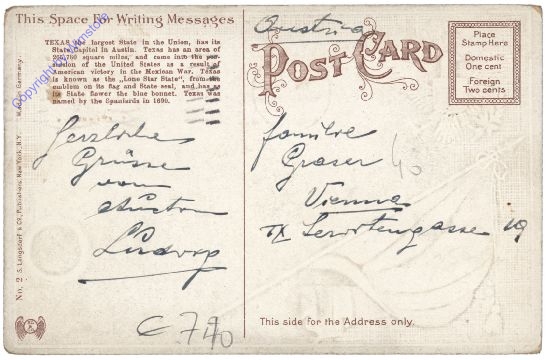 This Space For Writing Messages
TEXAS the largest State in the Union, has its
State Capitol in Austin. Texas has an area of
265,780 square miles, and came into the pos-
session of the United States as a result of
American victory in the Mexican War. Texas
is known as the „Lone Star State", from the
emblem on its flag and State seal, and has as
its State flower the blue bonnet. Texas was
named by the Spaniards in 1690.
Herzliche
Grüsse
von
Austin
Ludwig
€ 7,40
No. 2 S. Langsdorf & Co., Publishers, New York, N.Y. Made in Germany.
Copyright
Austria
POST CARD
Place
Stamp Here
Domestic
One cent
Foreign
Two cents
Familie
Graser
Vienna
IX Servitengasse 19
40
This side for the Address only.